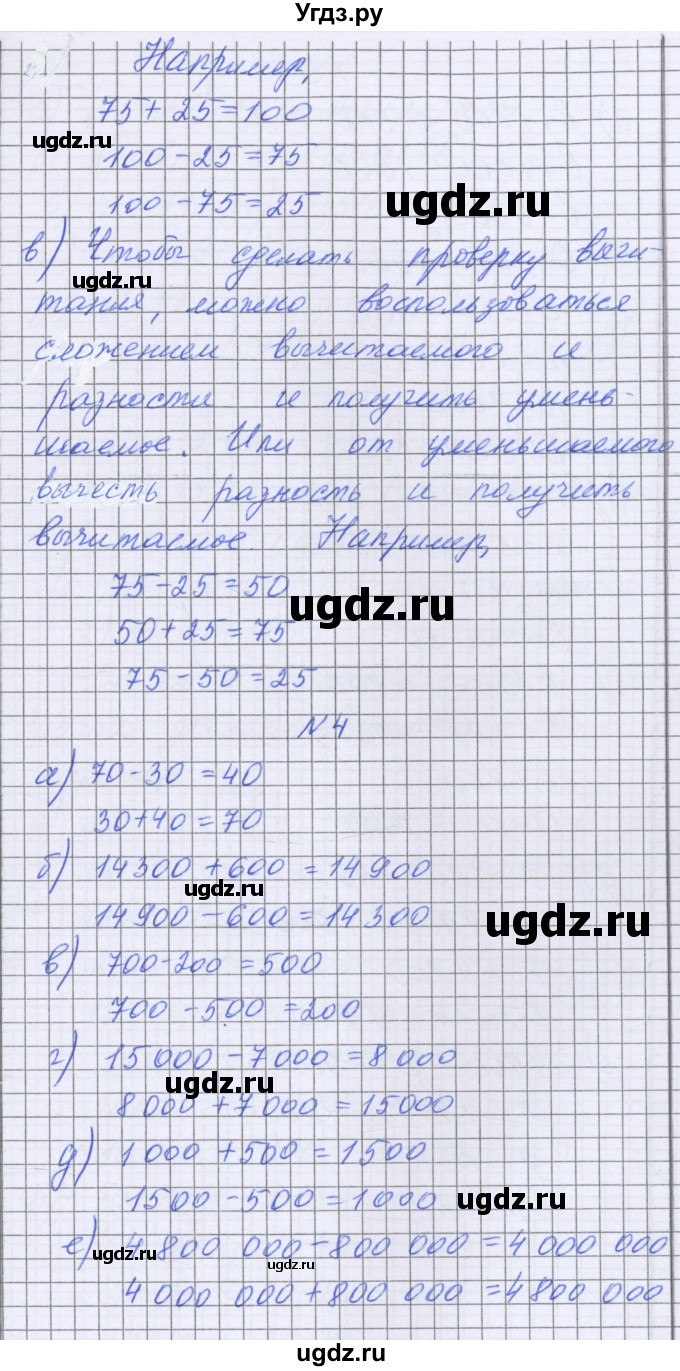 Угдз.ру
Например,
75 + 25 = 100
ugdz.ru
100 - 25 = 75
ugdz.ru
100 - 75 = 25
в) Чтобы сделать проверку вычи-
ugdz.ru
тания, можно воспользоваться
сложением вычитаемого и
разности и получить умень-
шаемое. Или от уменьшаемого
вычесть разность и получить
вычитаемое. Например,
75 - 25 = 50
ugdz.ru
50 + 25 = 75
75 - 50 = 25
№ 4
а) 70 - 30 = 40
30 + 40 = 70
б) 14 300 + 600 = 14 900
ugdz.ru
14 900 - 600 = 14 300
ugdz.ru
в) 700 - 200 = 500
700 - 500 = 200
г) 15 000 - 7 000 = 8 000
ugdz.ru
8 000 + 7 000 = 15000
д) 1 000 + 500 = 1500
1500 - 500 = 1000
ugdz.ru
е) 4 800 000 - 800 000 = 4 000 000
ugdz.ru
ugdz.ru
4 000 000 + 800 000 = 4 800 000
ugdz.ru